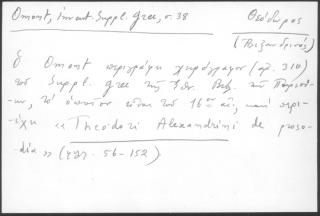 Omont, Invent. Suppl. Grec, σ. 38
Θεόδωρος
(Ἀλεξανδρινός)
ὁ Omont περιγράφει χειρόγραφον (ἀρ. 310)
τοῦ Suppl. Grec τῆς Ἐθν. Βιβ. τῶν Παρισί-
ων, τὸ ὁποῖον εἶναι τοῦ 16ου αἰ. καὶ περι-
έχει «Theodori Alexandrini de proso-
dia» (φφ. 56-152).